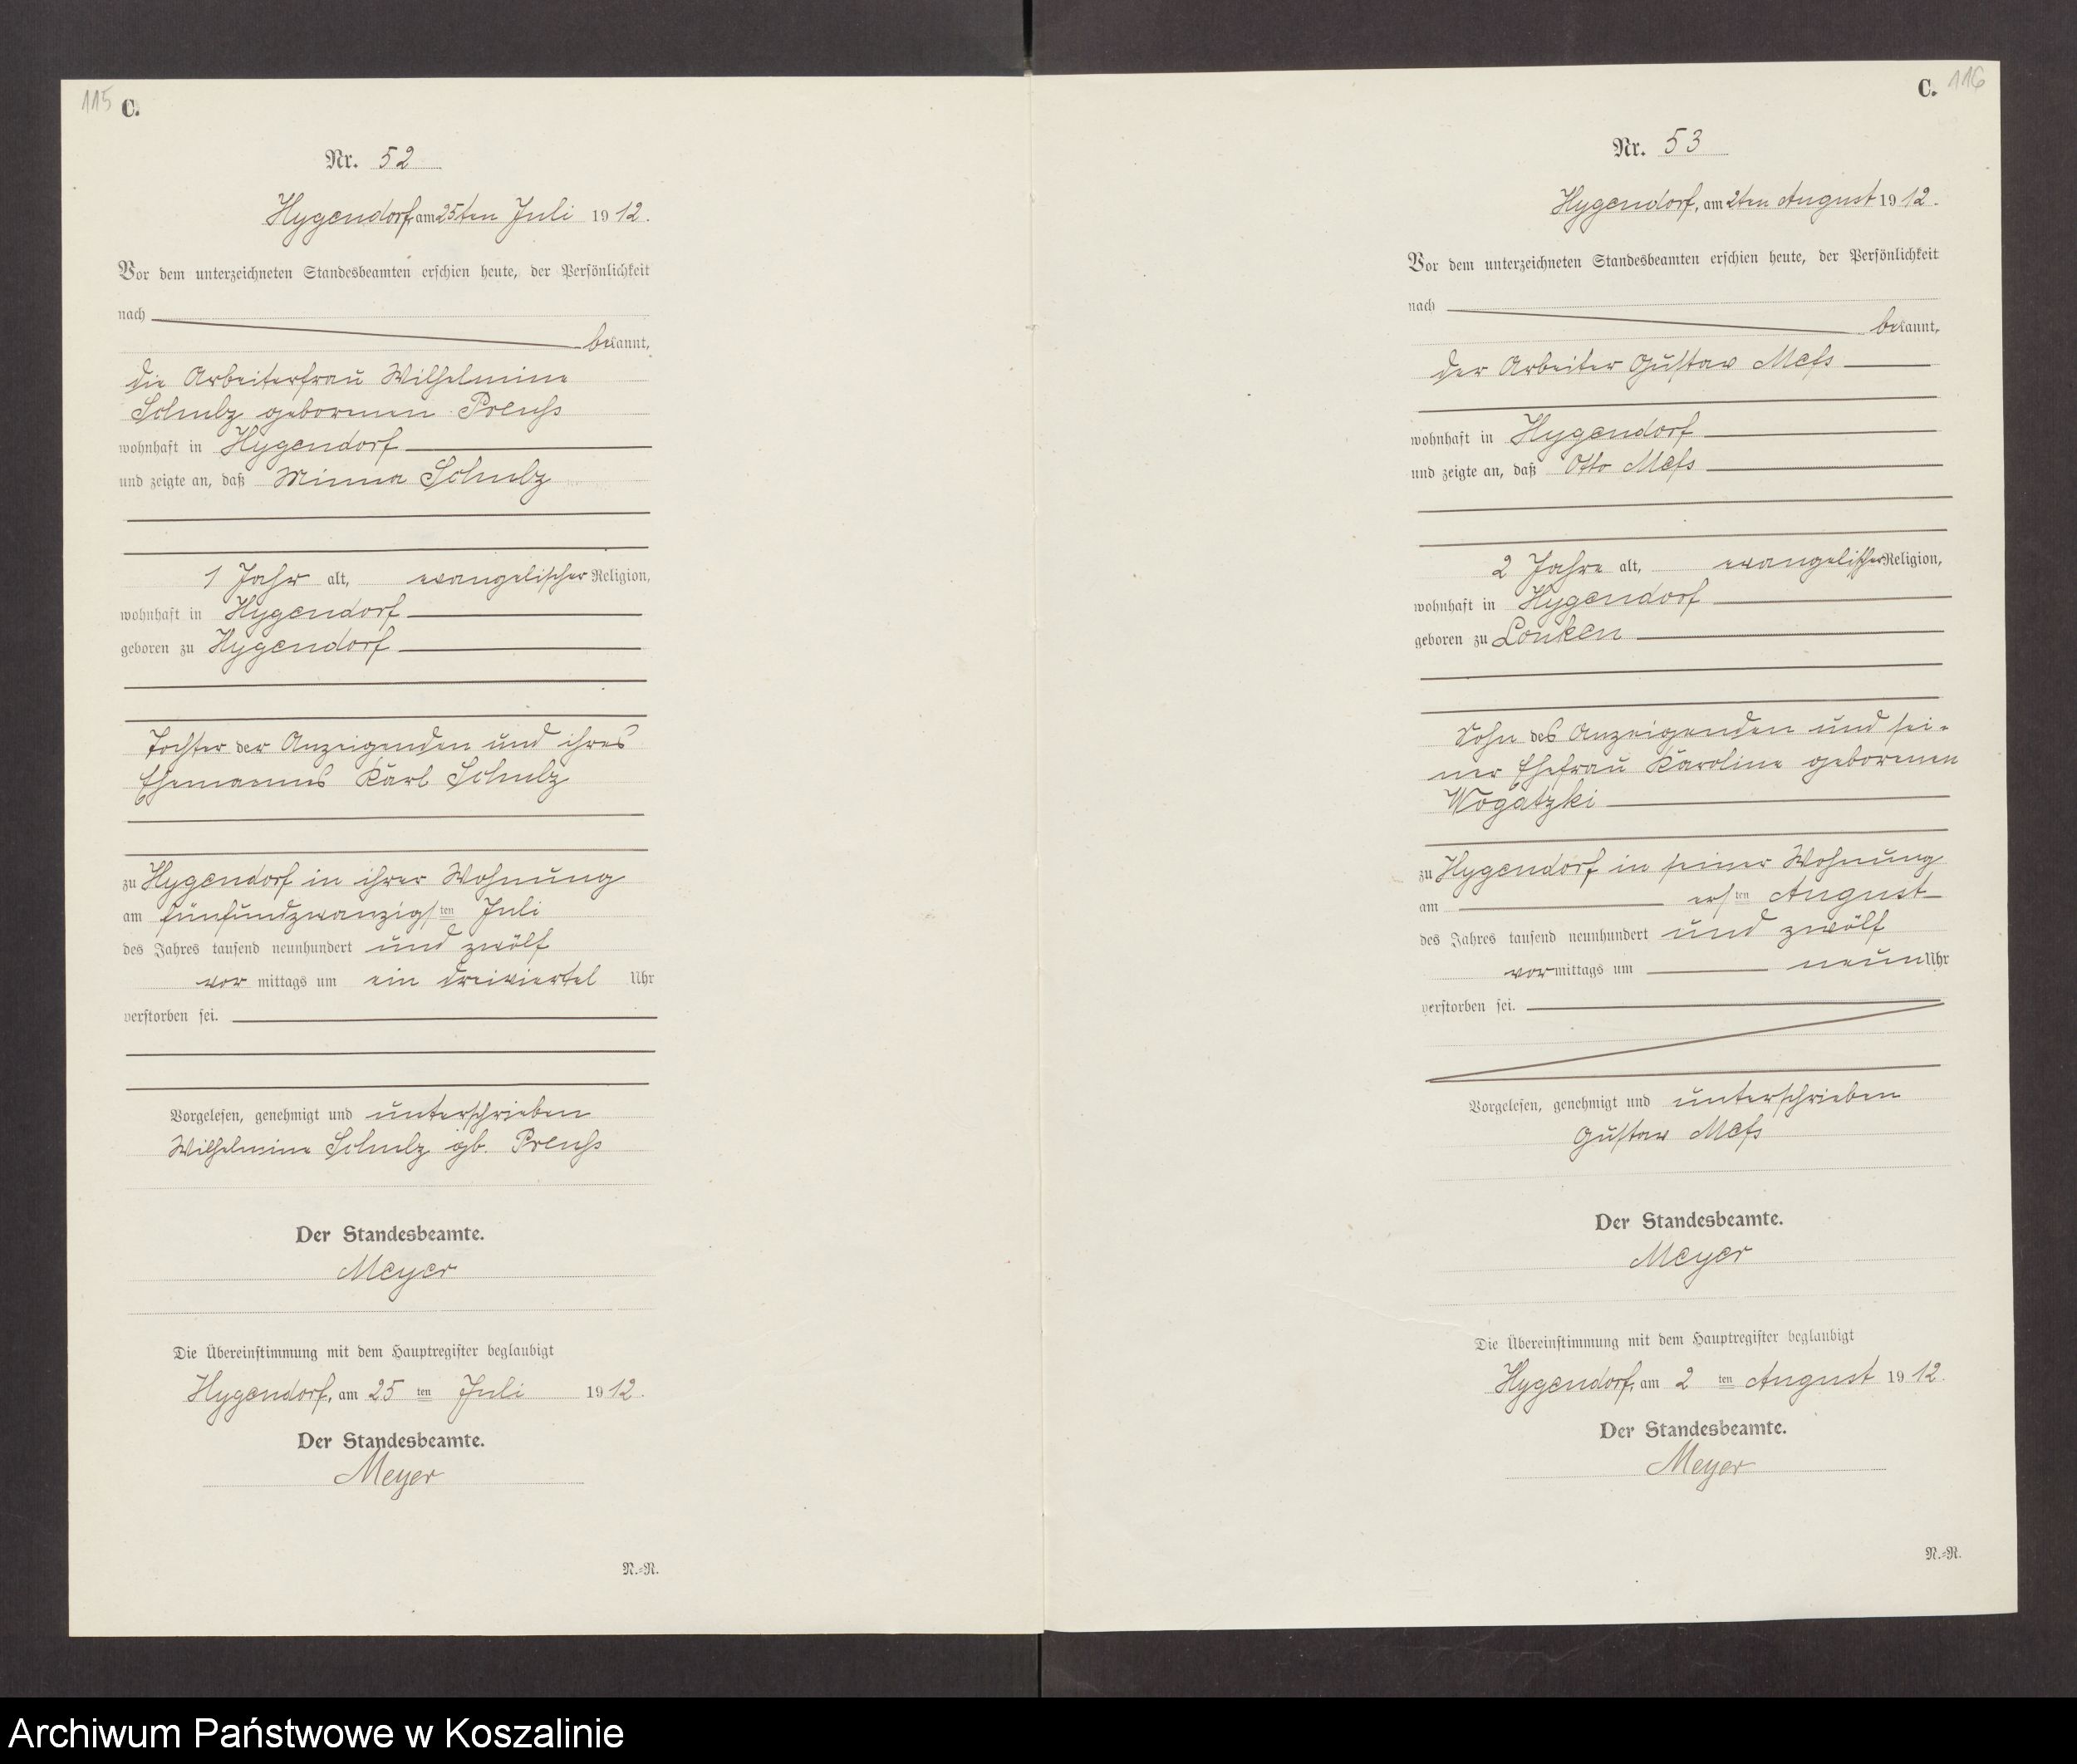 115 C.
Nr. 52
Hygendorf, am 25ten Juli 1912.
Vor dem unterzeichneten Standesbeamten erschien heute, der Persönlichkeit
nach
bekannt,
die Arbeiterfrau Wilhelmine
Schulz geborenen Preuß
wohnhaft in Hygendorf
und zeigte an, daß Minna Schulz
1 Jahr alt, evangelischer Religion,
wohnhaft in Hygendorf
geboren zu Hygendorf
Tochter der Anzeigenden und ihres
Ehemannes Karl Schulz
zu Hygendorf in ihrer Wohnung
am fünfundzwanzigsten Juli
des Jahres tausend neunhundert und zwölf
vor mittags um ein dreiviertel Uhr
verstorben sei.
Vorgelesen, genehmigt und unterschrieben
Wilhelmine Schulz gb. Preuß
Der Standesbeamte.
Meyer
Die Übereinstimmung mit dem Hauptregister beglaubigt
Hygendorf, am 25 ten Juli 1912.
Der Standesbeamte.
Meyer
N.=N.
C. 116
Nr. 53
Hygendorf, am 2ten August 1912.
Vor dem unterzeichneten Standesbeamten erschien heute, der Persönlichkeit
nach
bekannt,
der Arbeiter Gustav Meß
wohnhaft in Hygendorf
und zeigte an, daß Otto Meß
2 Jahre alt, evangelischer Religion,
wohnhaft in Hygendorf
geboren zu Lonken
Sohn des Anzeigenden und sei=
ner Ehefrau Karoline geborenen
Wogatzki
zu Hygendorf in seiner Wohnung
am ersten August
des Jahres tausend neunhundert und zwölf
vormittags um neun Uhr
verstorben sei.
Vorgelesen, genehmigt und unterschrieben
Gustav Meß
Der Standesbeamte.
Meyer
Die Übereinstimmung mit dem Hauptregister beglaubigt
Hygendorf, am 2 ten August 1912.
Der Standesbeamte.
Meyer
N.=N.
Archiwum Państwowe w Koszalinie